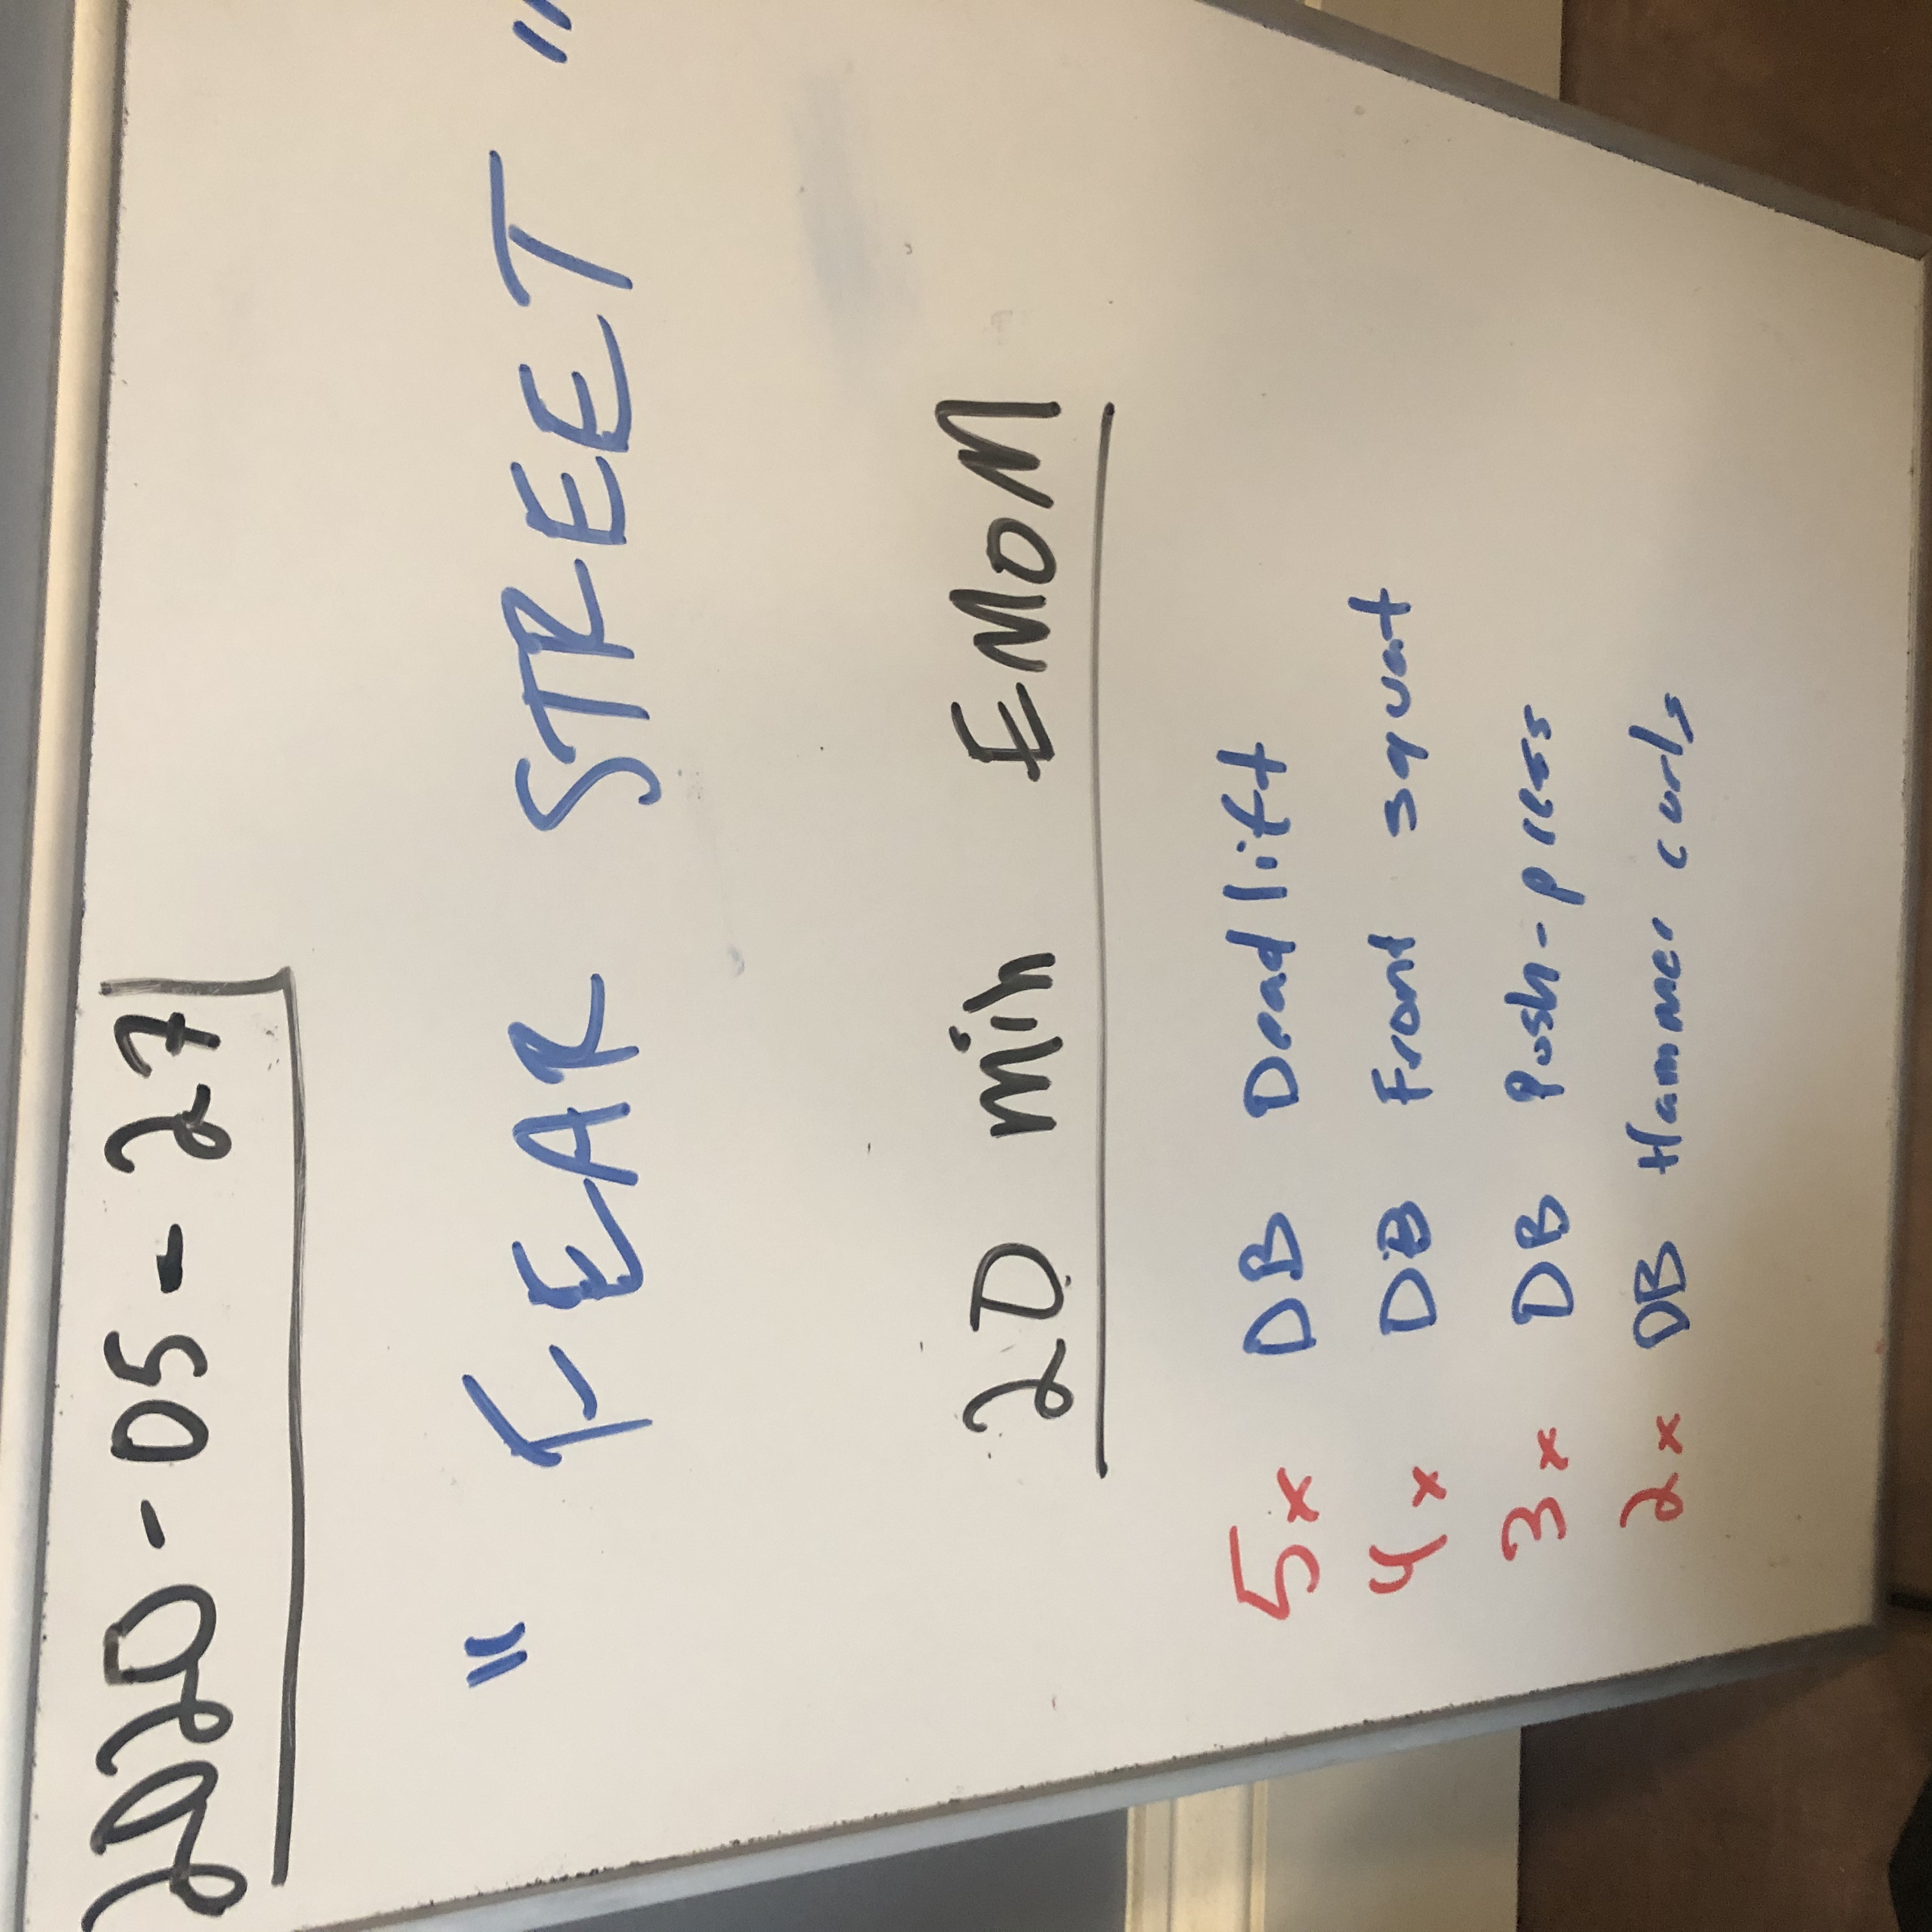 2020-05-27
"FEAR STREET"
20 min EMOM
5x DB Deadlift
4x DB Front squat
3x DB Push-press
2x DB Hammer curls